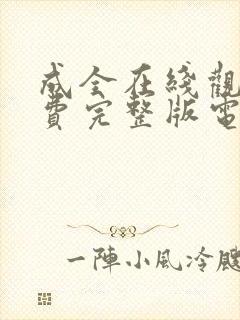 成全在綫觀
費完整版電
一陣小風冷颼